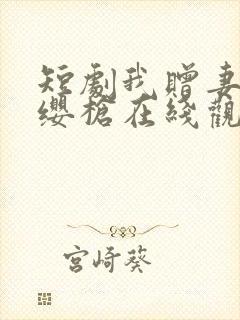 短劇我贈妻
纓槍在綫觀
宮崎葵